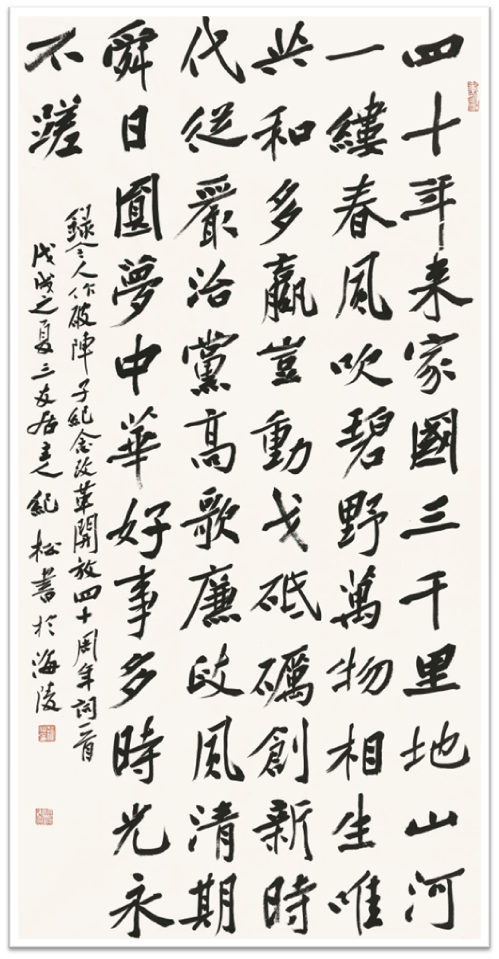 四十年来家國三千里地山河
一縷春風吹碧野萬物相生唯
共和多贏豈動戈砥礪創新時
代從嚴治黨高歌廉政風清期
舜日圓夢中華好事多時光永
不蹉
錄今人作破陣子紀念改革開放四十周年詞一首
戊戌之夏三友居主人紀松書於海陵